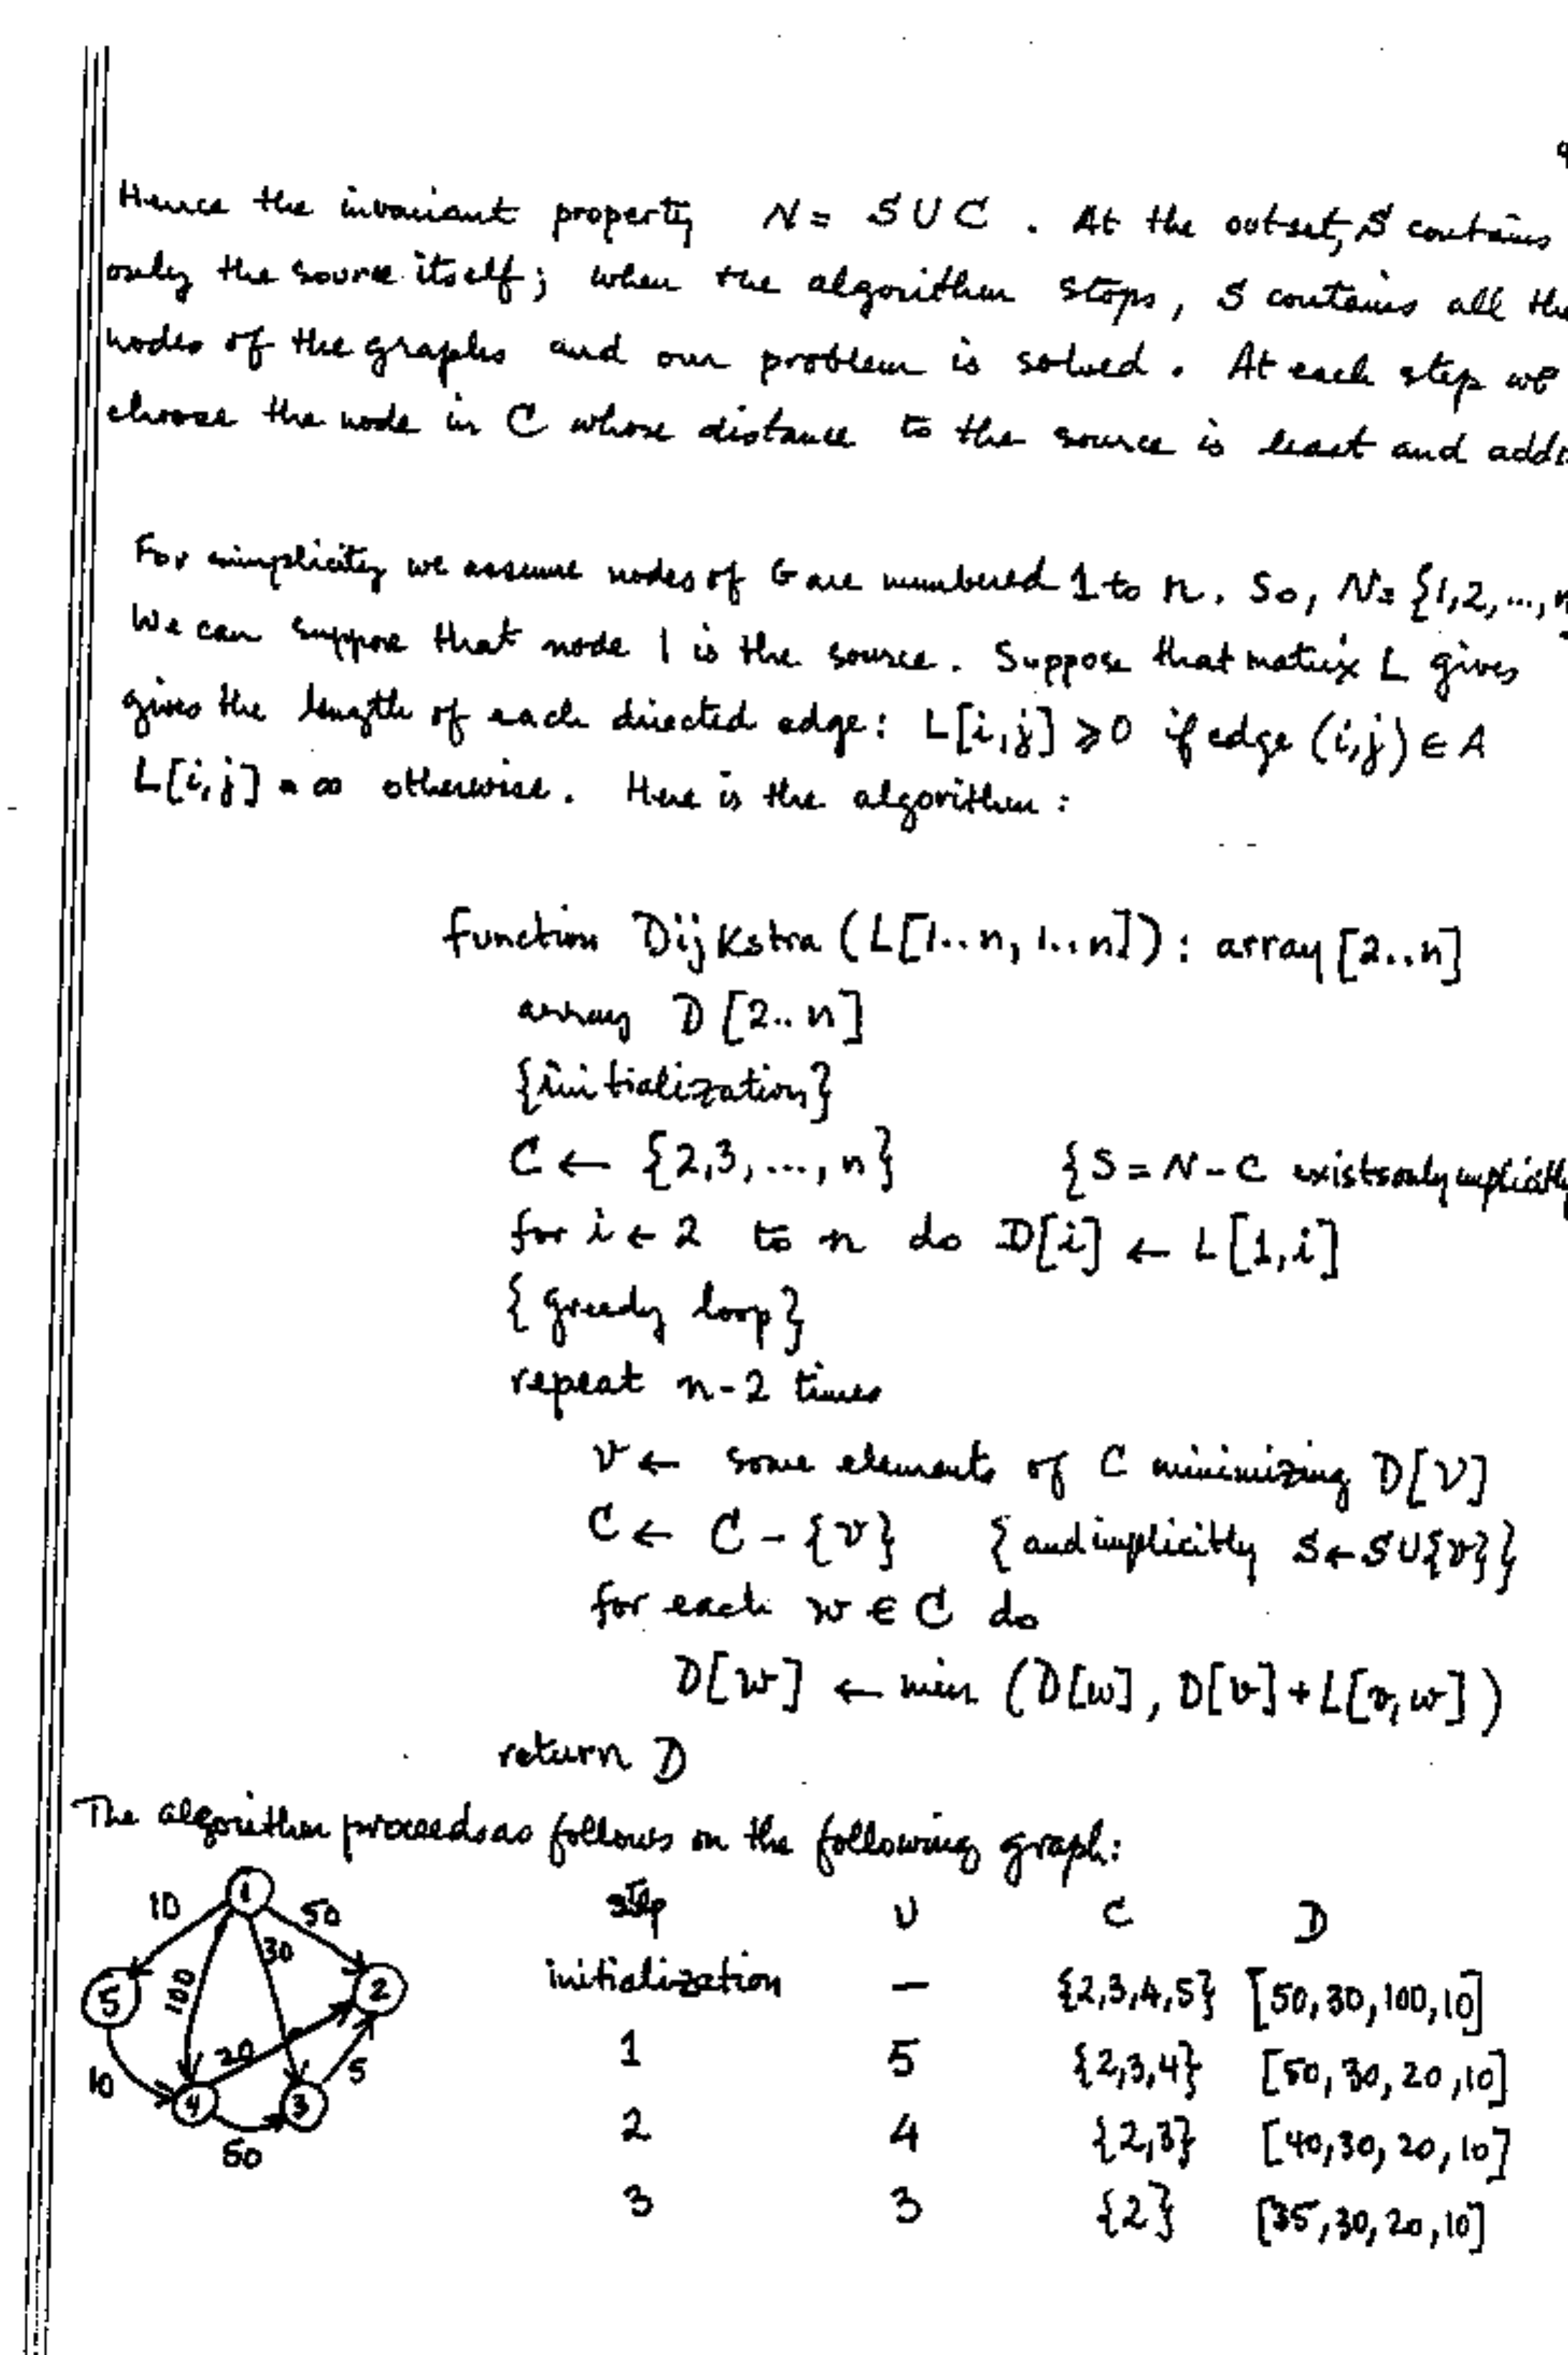 Hence the invariant property N = S U C . At the outset, S contains
only the source itself; when the algorithm stops, S contains all the
nodes of the graphs and our problem is solved. At each step we
choose the node in C whose distance to the source is least and add
For simplicity we assume nodes of G are numbered 1 to n. So, N= {1,2,...,n
We can suppose that node 1 is the source. Suppose that matrix L gives
gives the length of each directed edge: L[i,j] ⩾ 0 if edge (i,j) ∈ A
L[i,j] = ∞ otherwise. Here is the algorithm:
function Dijkstra (L[1..n, 1..n]): array [2..n]
array D [2..n]
{initialization}
C ← {2,3,...,n} {S = N - C exists only implicitly
for i ← 2 to n do D[i] ← L[1,i]
{greedy loop}
repeat n-2 times
v ← some elements of C minimizing D[v]
C ← C - {v} {and implicitly S ← S U {v}}
for each w ∈ C do
D[w] ← min (D[w], D[v] + L[v,w])
return D
The algorithm proceeds as follows on the following graph:
step v C D
initialization — {2,3,4,5} [50,30,100,10]
1 5 {2,3,4} [50,30,20,10]
2 4 {2,3} [40,30,20,10]
3 3 {2} [35,30,20,10]
1
10
50
30
100
5
2
20
5
10
4
3
50